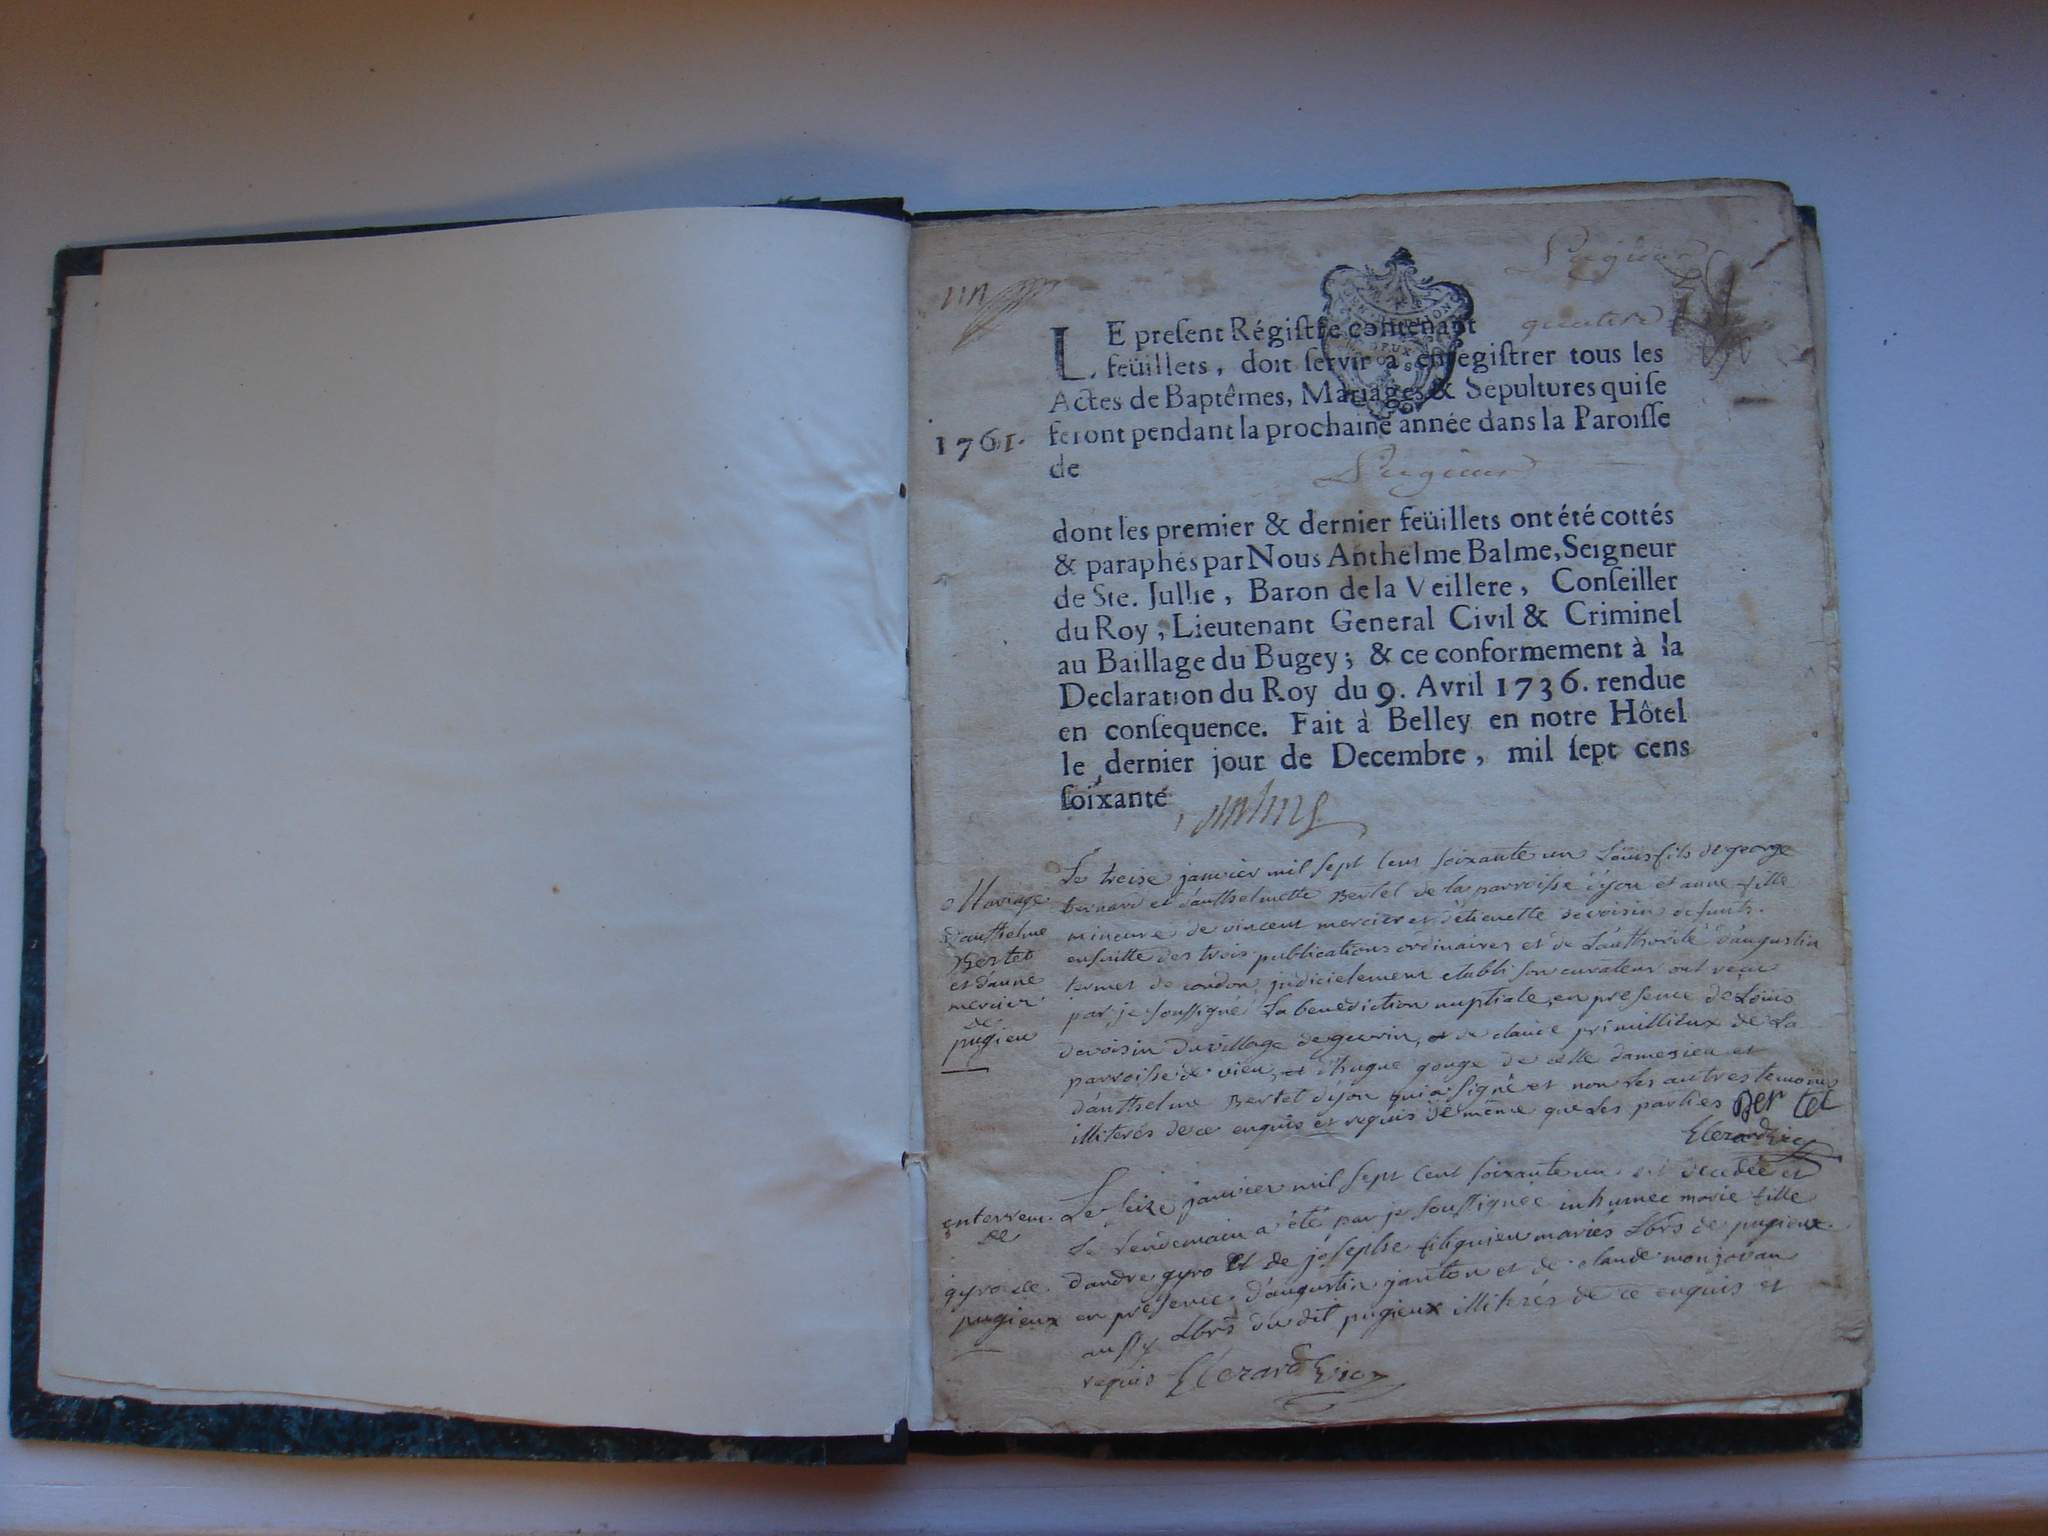 Pugieu
un
LE present Régistre contenant quatre
feüillets, doit servir à enregistrer tous les
Actes de Baptêmes, Mariages & Sepultures qui se
1761. feront pendant la prochaine année dans la Paroisse
de Pugieux
dont les premier & dernier feüillets ont été cottés
& paraphés par Nous Anthelme Balme, Seigneur
de Ste. Jullie, Baron de la Veillere, Conseiller
du Roy, Lieutenant General Civil & Criminel
au Baillage du Bugey; & ce conformement à la
Declaration du Roy du 9. Avril 1736. rendue
en consequence. Fait à Belley en notre Hôtel
le dernier jour de Decembre, mil sept cens
soixante
Mariage
d'anthelme
Bertet
et d'anne
mercier
de
pugieu
Le treize janvier mil sept cent soixante un Loüis fils de george
bernard et d'anthelmette Bertet de la parroisse d'yon et anne fille
mineure de vincent mercier et d'etiennette devoisin defunts.
ensuitte des trois publications ordinaires et de l'authorité d'augustin
termet de condon judicielement etabli son curateur ont reçu
par je soussigné La benediction nuptiale, en presence de Loüis
devoisin du village de gevrin, et de claude primillieux de La
parroisse de vieu, et d'hugue gouge de celle d'amesieu et
d'anthelme Bertet d'yon qui a signé et non Les autres temoins
illiterés de ce enquis et requis de même que Les parties Ber tet
enterrem.
de
gyro de
pugieux
Le seize janvier mil sept cent soixante un est decedée et
Le Lendemain a été par je soussignée inhumée marie fille
d'andre gyro et de josephe mariés Lbrs de pugieux
en presence d'augustin janton et de claude
aussy Lbrs du dit pugieux illiterés de ce enquis et
requis